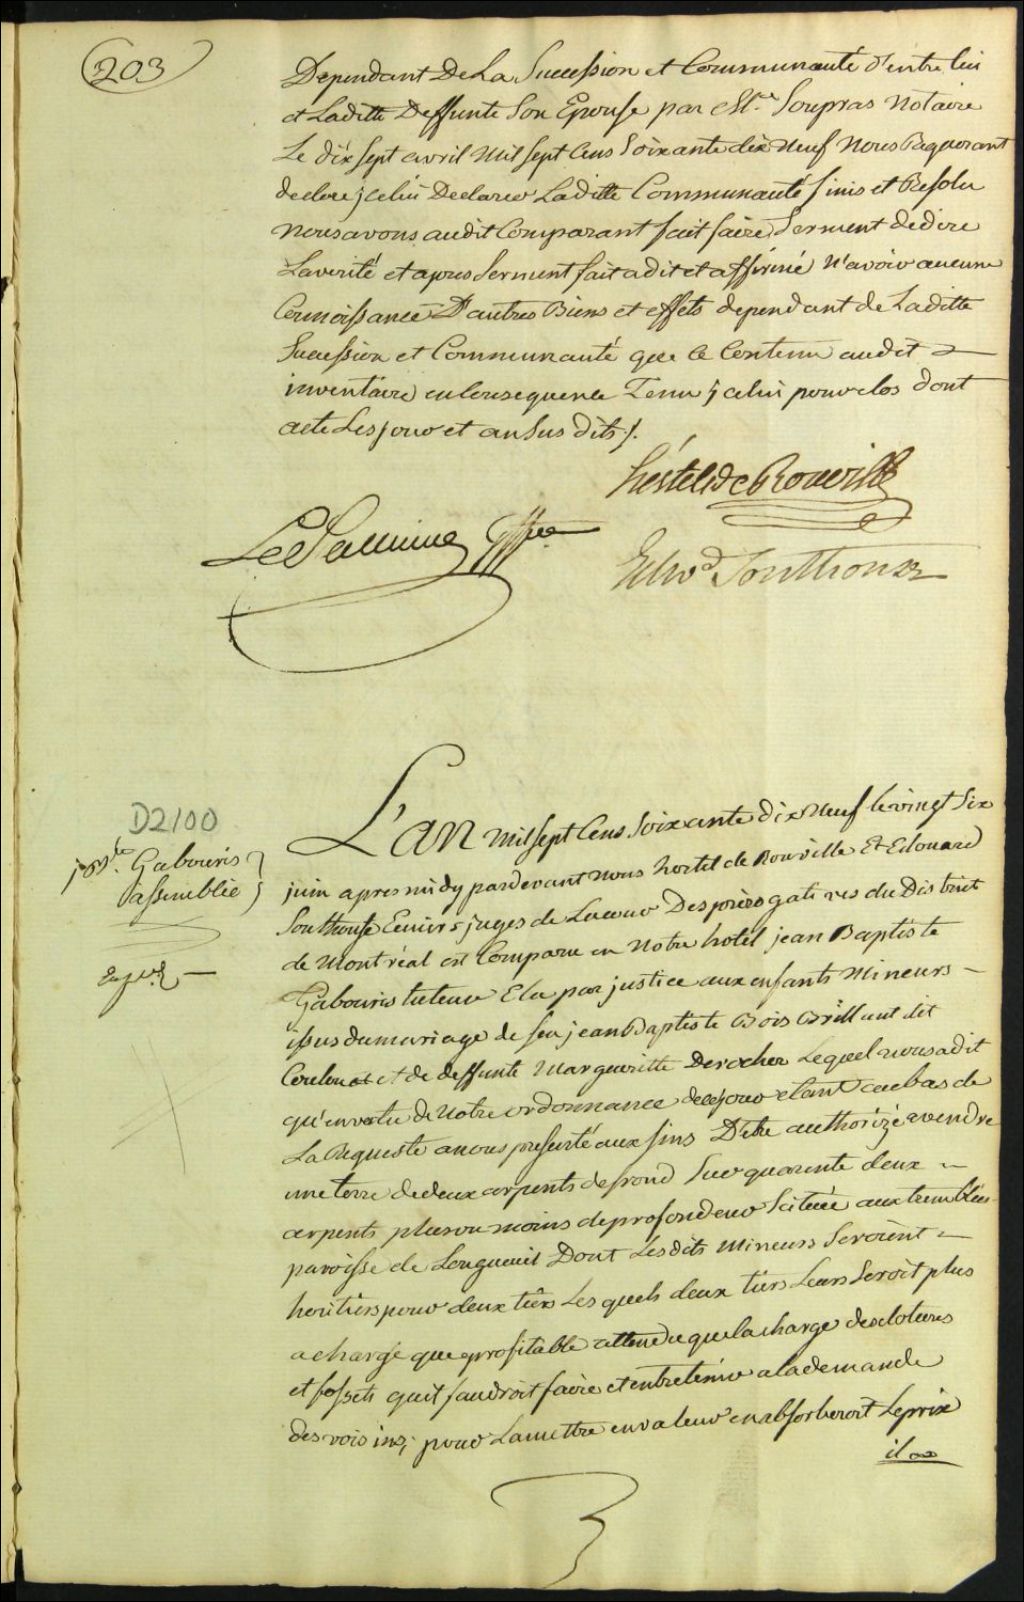 203
Dependant De La Succession et Communauté d'entre lui
et Laditte Deffunte Son Epouse par Me. Soupras Notaire
Le dix sept avril Mil sept Cens Soixante dix Neuf Nous Requerant
declore jcelui Declarer Laditte Communauté finie et Resolu
nous avons audit Comparant fait faire Serment de dire
La verité et apres Serment fait a dit et affirmé N'avoir aucune
Connoissance D'autres Biens et effets dependant de Laditte
Succession et Communauté que le Contenu audit
inventaire en Consequence Tenu jcelui pour clos dont
acte Les jour et an Sus dits /.
hertel de Rouville
Edwd Southouse
D2100
jn Bte. Gabouris
assemblée
L'an mil sept Cens Soixante dix Neuf le vingt Six
juin apres midy pardevant nous hertel de Rouville Et Edouard
Southouse Ecuiers juges de La cour Des prérogatives du District
de Montréal est Comparu en Notre hotel jean Baptiste
Gabouris tuteur Elu par justice aux enfants Mineurs
issus du mariage de feu jean Baptiste Bois Brillant dit
et de deffunte Margueritte Derocher Lequel nous a dit
qu'en vertu de Notre ordonnance de ce jour etant au bas de
La Requeste a nous presenté aux fins D'etre authorizé a vendre
une terre de deux arpents de frond Sur quarente deux
arpents plus ou moins de profondeur Scituée aux trembles
paroisse de Longueuil Dont Lesdits Mineurs Seroient
heritiers pour deux tiers Les quels deux tiers Leurs Seroit plus
a charge que profitable attendu que la charge des clotures
et fossets qu'il faudroit faire et entretenir a la demande
des voisins; pour La mettre en valeur en absorberoit Le prix
il a